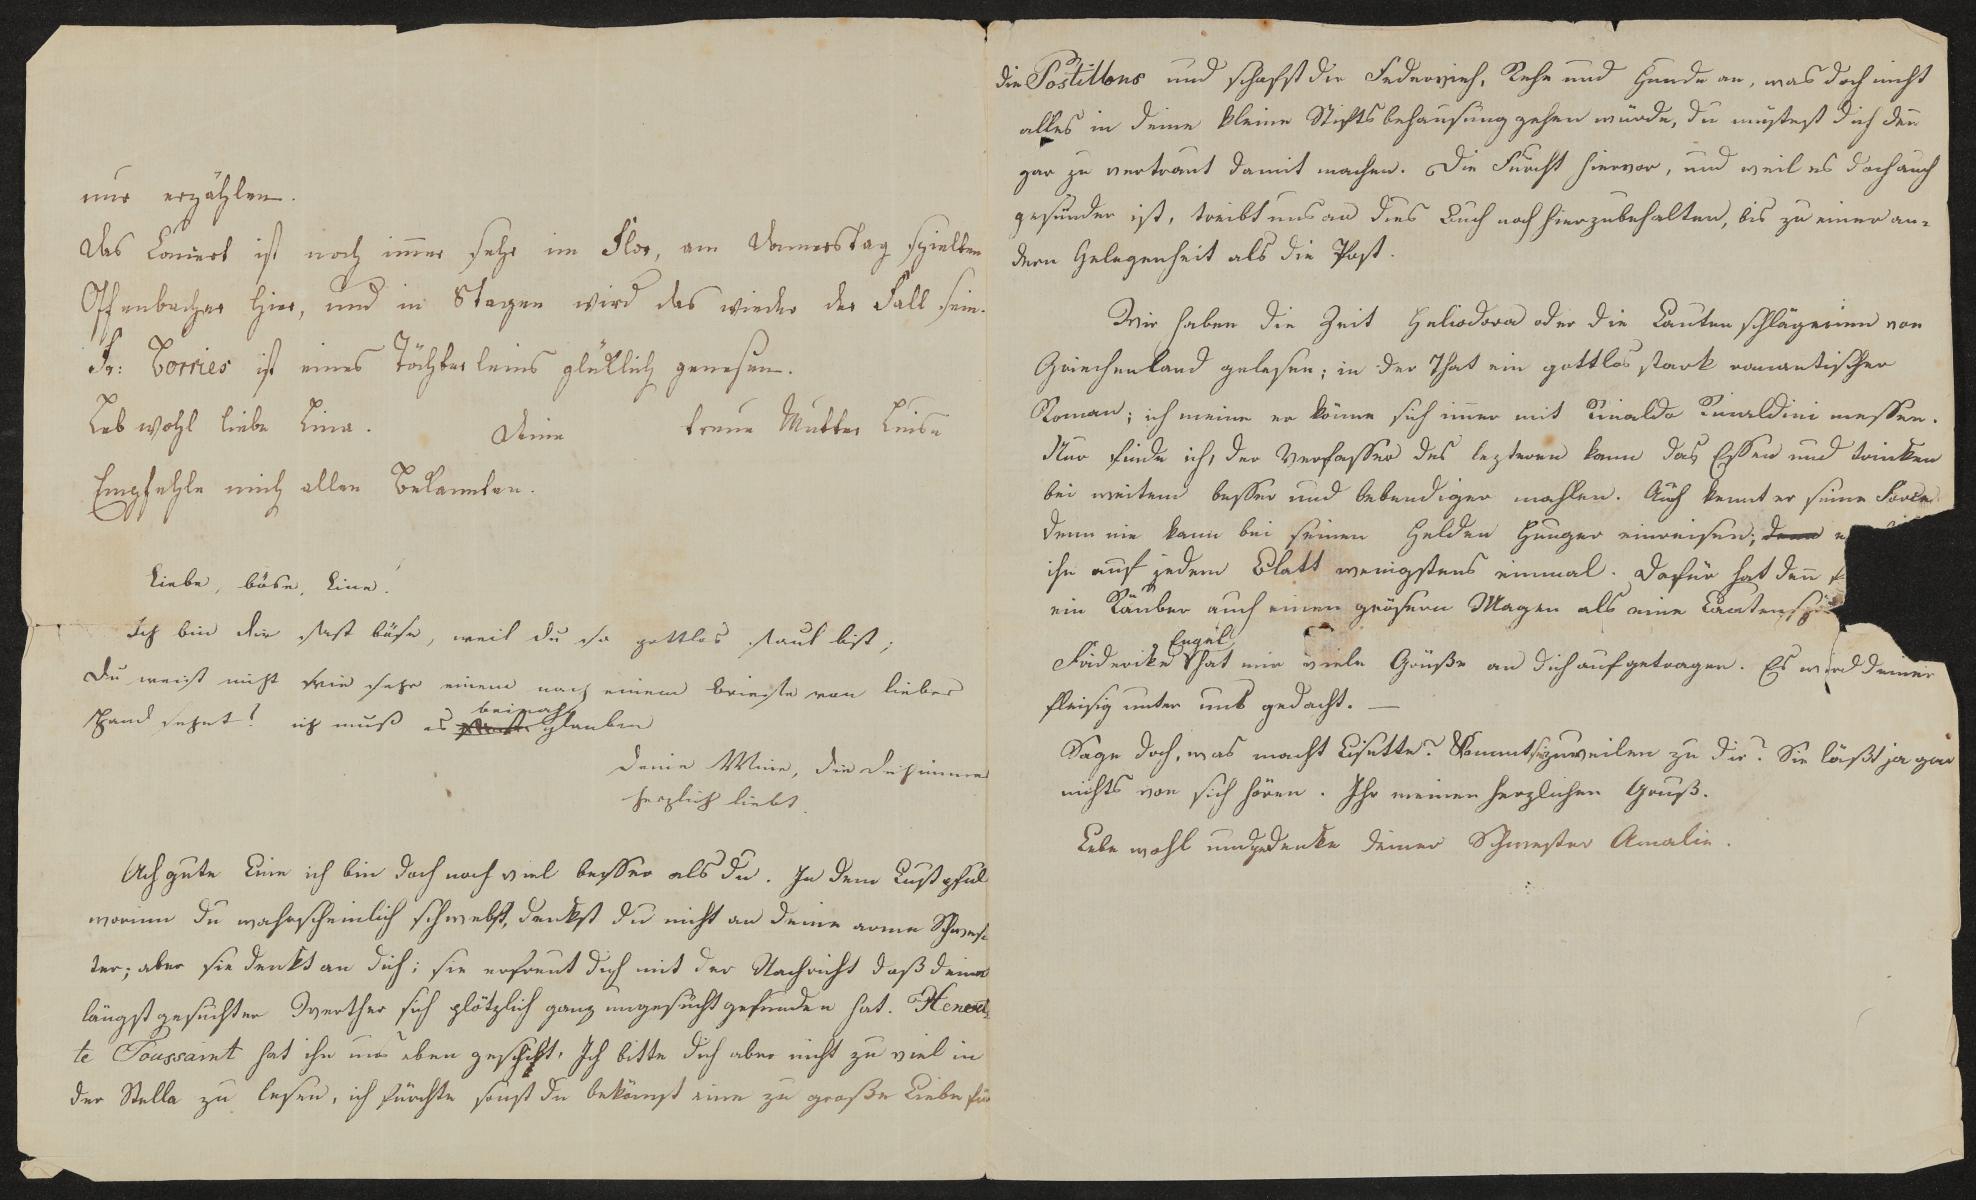 nur erzählen.
Das Concert ist noch im̅er sehr im Flor, am Donnerstag spielten
Offenbacher hier, und in 8 Tagen wird das wieder der Fall sein.
Fr: Borries ist eines Töchterleins glücklich genesen.
Leb wohl liebe Lina. Deine treue Mutter Luise
Empfehle mich allen Bekannten.
Liebe, böse, Line!
Ich bin dir fast böse, weil du so gottlos faul bist;
Du weist nicht wie sehr einem nach einem briefe von lieber
Hand sehnt! ich muß es beinah glauben
Deine Mine, die dich immer
herzlich liebt.
Ach gute Line ich bin doch noch viel besser als du. In dem Lustpful
worinn du wahrscheinlich schwebst, denkst du nicht an deine arme Schwes-
ter; aber sie denkt an dich; sie erfreut dich mit der Nachricht daß dein
längst gesuchter Werther sich plötzlich ganz ungesucht gefunden hat. Henriet-
te Toussaint hat ihn uns eben geschickt. Ich bitte dich aber nicht zu viel in
der Stella zu lesen, ich fürchte sonst du bekömst eine zu große Liebe für
die Postillons und schafst dir Federvieh, Rehe und Hunde an, was doch nicht
alles in deine kleine Stiftsbehausung gehen würde, du müstest dich den̅
gar zu vertraut damit machen. Die Furcht hiervor, und weil es doch auch
gesünder ist, treibt uns an dies Buch noch hierzubehalten, bis zu einer an-
dern Gelegenheit als die Post.
Wir haben die Zeit Heliodora oder die Lautenschlägerinn von
Griechenland gelesen; in der That ein gottlos stark romantischer
Roman; ich meine er könne sich im̅er mit Rinaldo Rinaldini messen.
Nur finde ich, der Verfasser des lezteren kann das Essen und trinken
bei weitem besser und lebendiger mahlen. Auch kennt er seine Force
denn nie kann bei seinen Helden Hunger einreisen; denn
ihn auf jedem Blatt wenigstens einmal. Dafür hat den̅
ein Räuber auch einen grösern Magen als eine Lautensp
Friderike Engel hat mir viele Grüße an dich aufgetragen. Es wird deiner
fleisig unter uns gedacht. —
Sage doch, was macht Lisette? Kommt sie zuweilen zu dir? Sie läßt ja gar
nichts von sich hören. Ihr meinen herzlichen Gruß.
Lebe wohl und gedenke deiner Schwester Amalie.